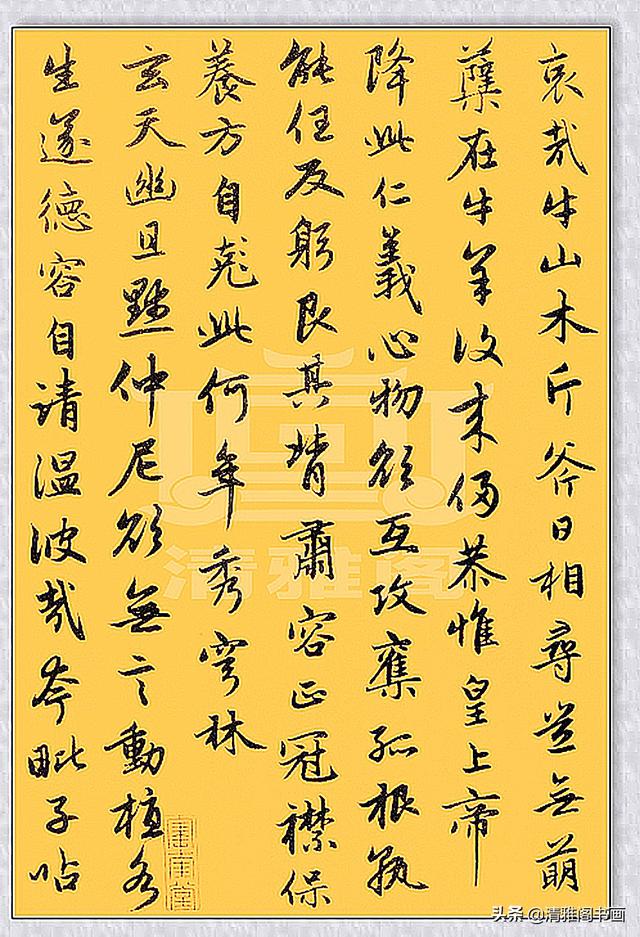 哀哉牛山木斤斧日相尋豈無萌
蘖在牛羊復來侵恭惟皇上帝
降此仁義心物欲互攻奪孤根孰
能任反躬艮其背肅容正冠襟保
養方自此何年秀穹林
玄天幽且默仲尼欲無言動植各
生遂德容自清溫彼哉夸毗子呫
清雅阁
头条 @清雅阁书画